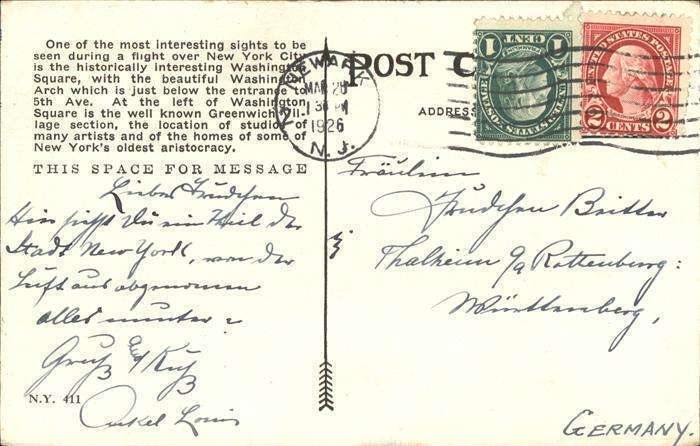 One of the most interesting sights to be
seen during a flight over New York City
is the historically interesting Washington
Square, with the beautiful Washington
Arch which is just below the entrance to
5th Ave. At the left of Washington
Square is the well known Greenwich Vil-
lage section, the location of studios of
many artists and of the homes of some of
New York's oldest aristocracy.
THIS SPACE FOR MESSAGE
Liebes Trudchen
Hier siehst Du ein Theil der
Stadt New York, von der
Luft aus abgenommen
alles munter
Gruß und Kuß
Onkel Louis
N.Y. 411
POST C
ADDRESS
NEWARK
MAR 25
PM
1926
N.J.
1 CENT 1
UNITED STATES POSTAGE
UNITED STATES POSTAGE
2 CENTS 2
Fräulein
Trudchen Britter
Thalheim o/a Rottenburg:
Württemberg,
GERMANY.